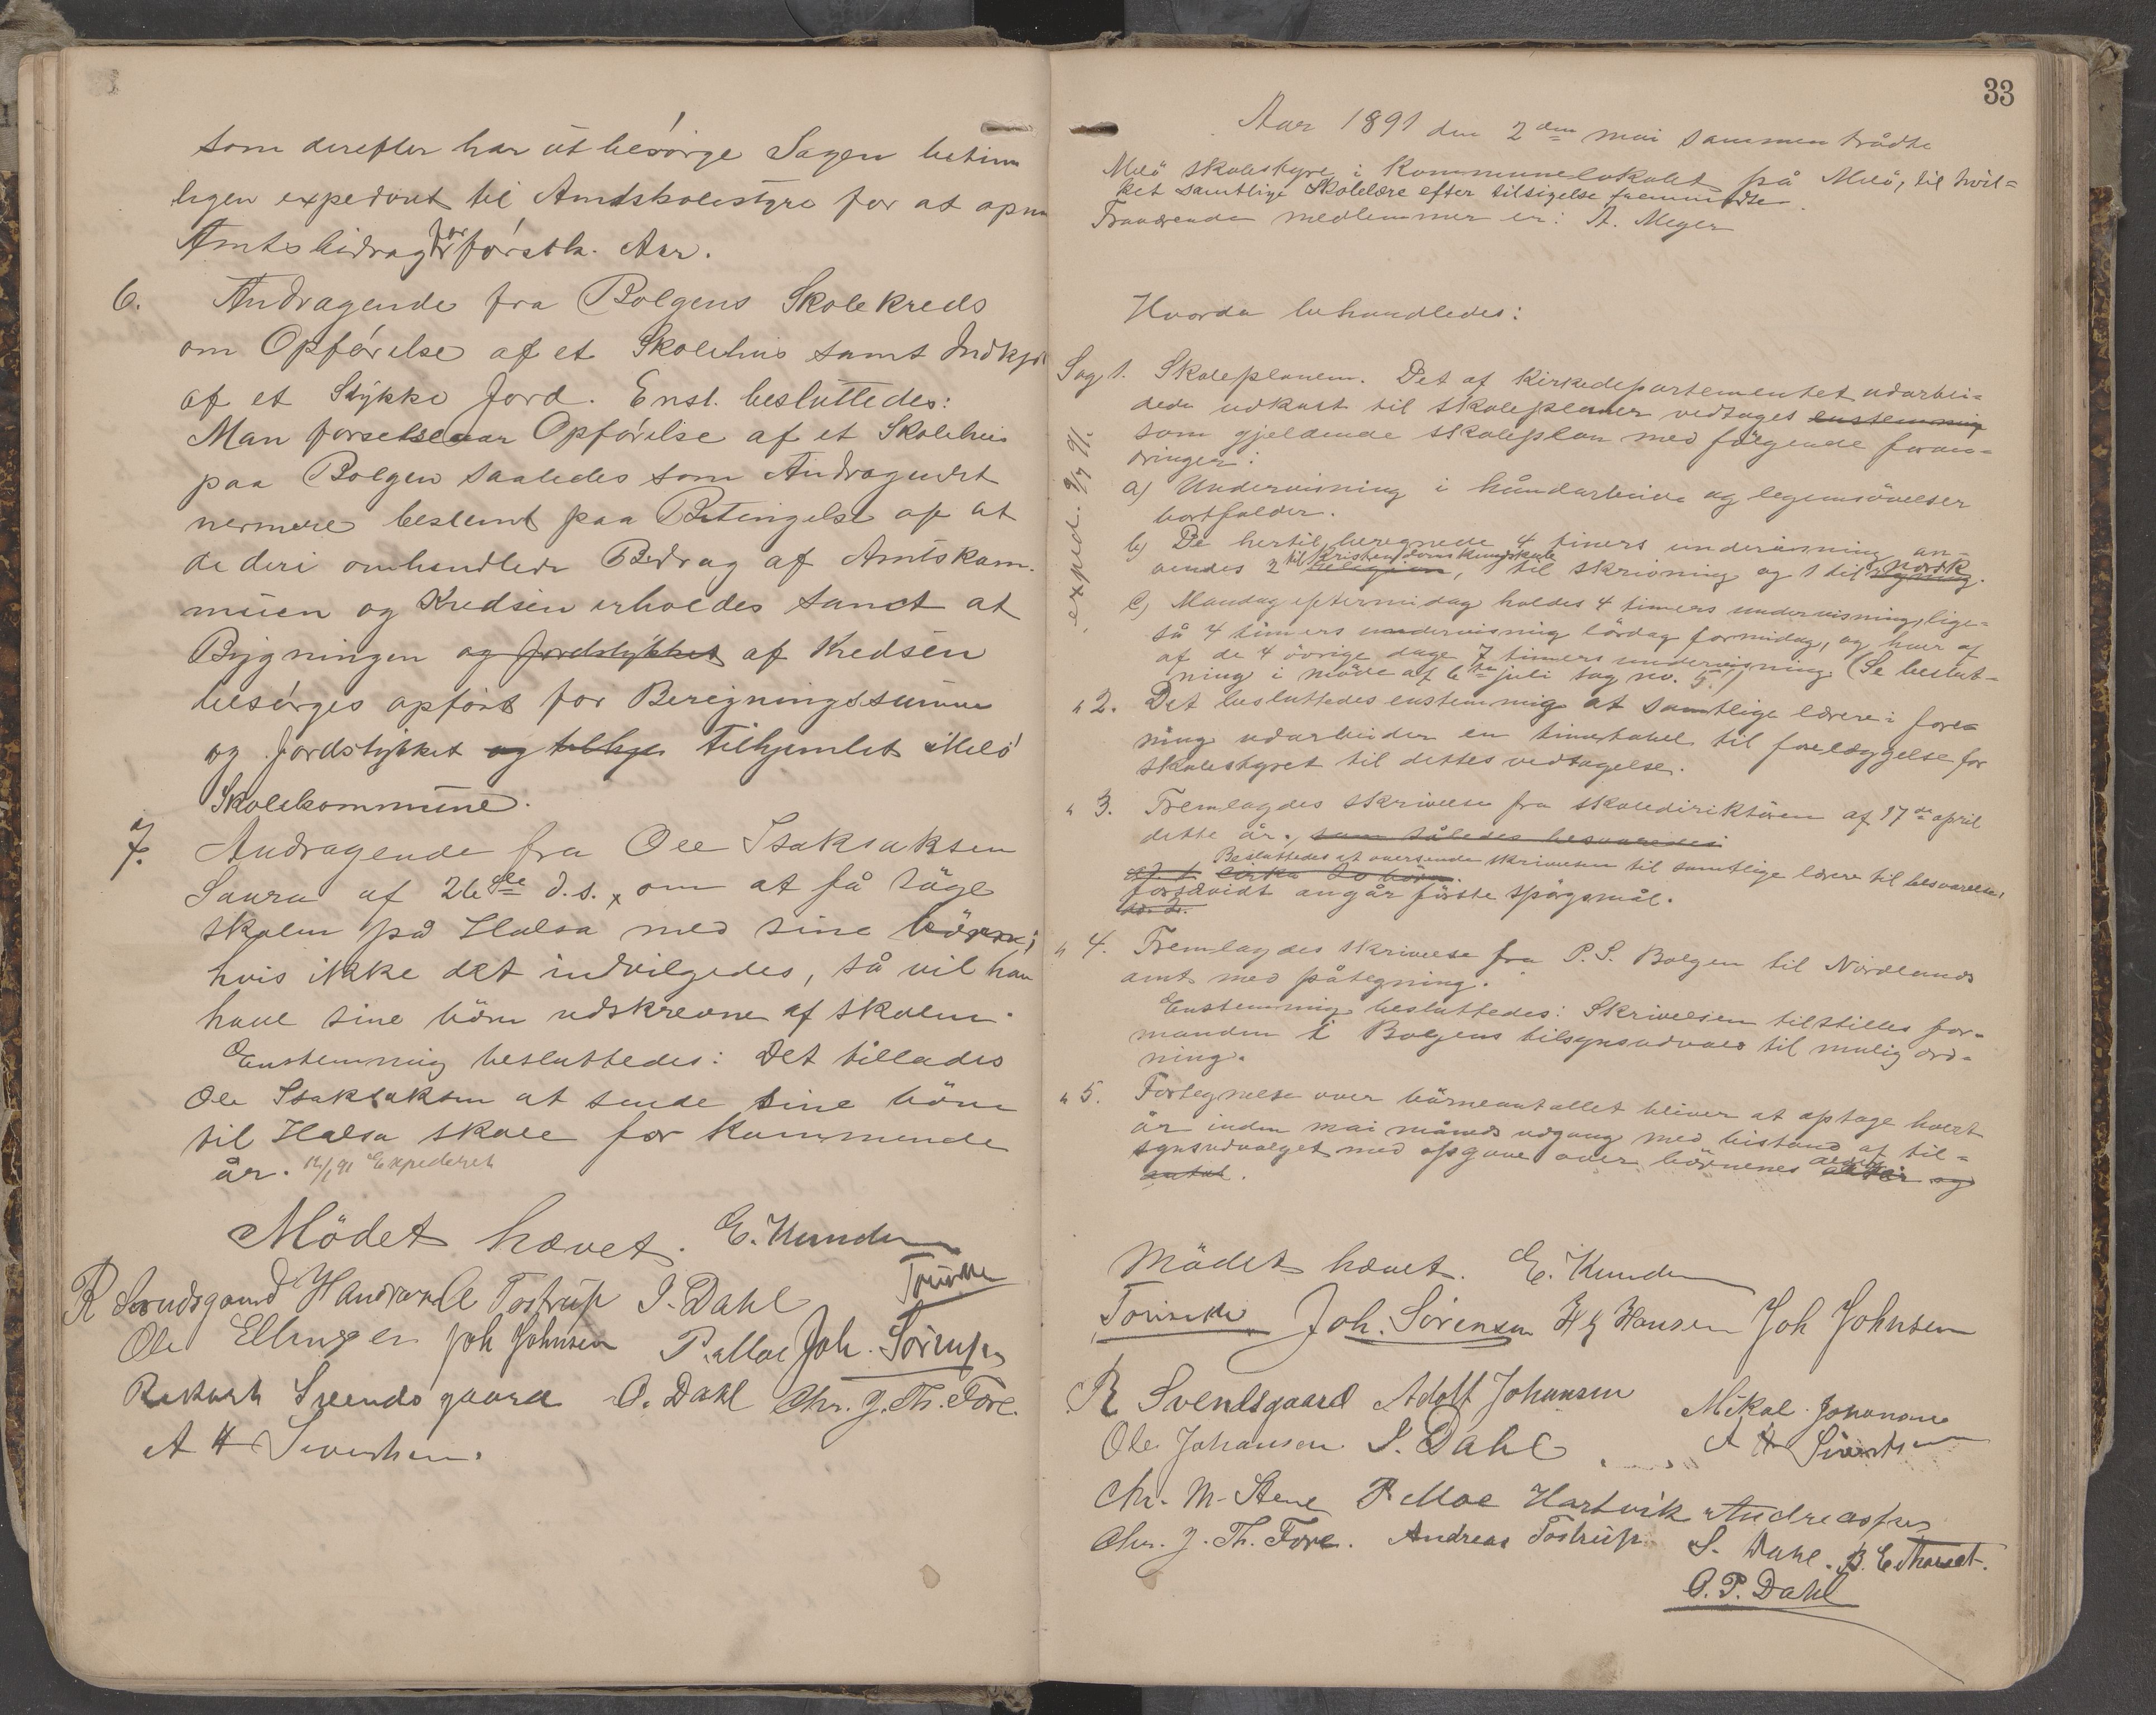 som derefter har at besørge Sagen betim
ligen expederet til Amtskolestyre for at opn
Amtsbidrag for førstk. Aar.
6. Andragende fra Bolgens Skolekreds
om Opførelse af et Skolehus samt Indkjø
af et Stykke Jord. Enst. besluttedes:
Man forsetser Opførelse af et Skolehus
paa Bolgen saaledes som Andragendet
nermere bestemt paa Betingelse af at
de deri omhandlede Bidrag af Amtskom-
munen og Kredsen erholdes samt at
Bygningen og Jordstykket af Kredsen
besørges opført for Beregningssummen
og Jordstykket og tillige tilhjemlet Melø
Skolekommune.
7. Andragende fra Ole Isaksaksen
Saura af 26de d.s., om at få søge
skolen på Halsa med sine börn;
hvis ikke det indvilgedes, så vil han
have sine börn udskrevne af skolen.
Enstemmig besluttedes: Det tillades
Ole Isaksaksen at sende sine börn
til Halsa skole for kommende
år. 12/1 91 Expederet
Mödet hævet. E. Kunden
R Svendsgaard A Tostrup I. Dahl
Ole Ellingsen Joh Johnsen P. Moe Joh. Sörensen
Rikhart Svendsgaard O. Dahl Chr. J. Th. Fore.
A H Sivertsen.
33
Aar 1891 den 2den mai sammentrådte
Melö skolestyre i Kommunelokalet på Melö, til hvil=
ket samtlige Skolelære efter tilsigelse fremmödte
Fraværende medlemmer er: A. Meyer
Hvorda behandledes:
Sag 1. Skoleplanen. Det af Kirkedepartementet udarbei=
dede udkast til skoleplaner vedtages enstemmig
som gjeldende skoleplan med fölgende foran=
dringer:
a) Undervisning i håndarbeide og legemsövelser
bortfalder.
b) De hertil beregnede 4 timers undervisning an-
vendes 2 til Kristendomskundskab religion, 1 til skrivning og 1 til norsk regning.
c) Mandag eftermidag holdes 4 timers undervisning, lige=
så 4 timers undervisning lördag formidag, og hver af
af de 4 övrige dage 7 timers undervisning (Se beslut-
ning i möde af 6te juli sag no. 5.)
expd. 9/7 91.
" 2. Det besluttedes enstemmig at samtlige lærere i fore-
ning udarbeider en timetabel til forelæggelse for
skolestyret til dettes vedtagelse.
" 3. Fremlagdes skrivelse fra skoledirektören af 17de april
dette år., som således besvaredes:
Besluttedes at oversende skrivelsen til samtlige lærere til besvarelse,
forsåvidt angår förste spörgsmål.
" 4. Fremlagdes skrivelse fra P. S. Bolgen til Nordlands
amt med påtegning.
Enstemmig besluttedes: Skrivelsen tilstilles for-
manden i Bolgens tilsynsudvalg til mulig ord-
ning.
" 5. Fortegnelse over börneantallet bliver at optage hvert
år inden mai måneds udgang med bistand af til=
synsudvalget med opgave over börnenes alder og
antal.
Mödet hævet. E. Kunden
Joh. Sörensen Joh Johnsen
R Svendsgaard Adolf Johansen Mikal Johansen
Ole Johansen I. Dahl A H Sivertsen
Chr. M. Stene P Moe Hartvik Andreassen
Chr. J. Th. Fore. Andreas Tostrup S. Dahl.
O. P. Dahl